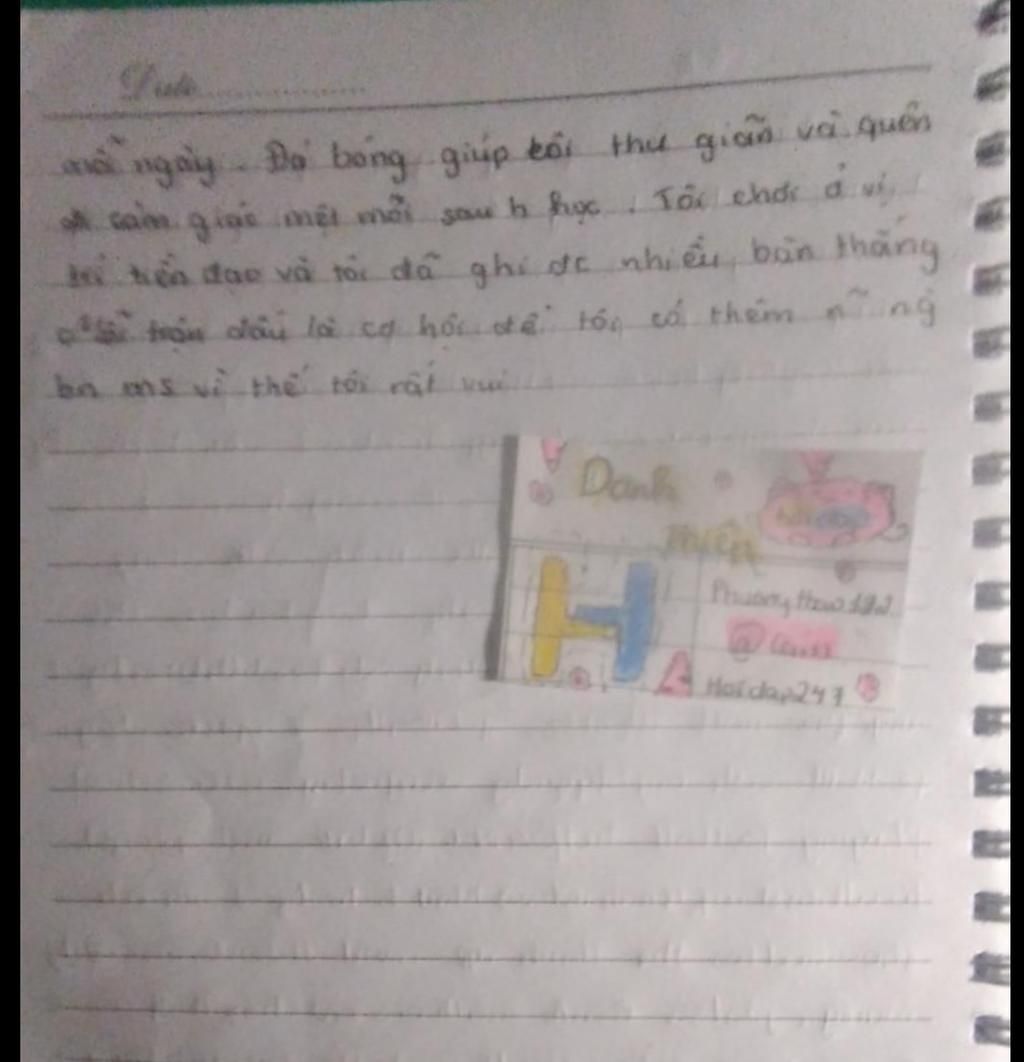 Date
mỗi ngày. Đá bóng giúp tôi thư giãn và quên
cảm giác mệt mỏi sau h học. Tôi chơi ở vị
trí tiền đạo và tôi đã ghi đc nhiều bàn thắng
trận đấu là cơ hội để tôi có thêm
bn ms vì thế tôi rất vui
Danh
thiếp
H
Hoidap247